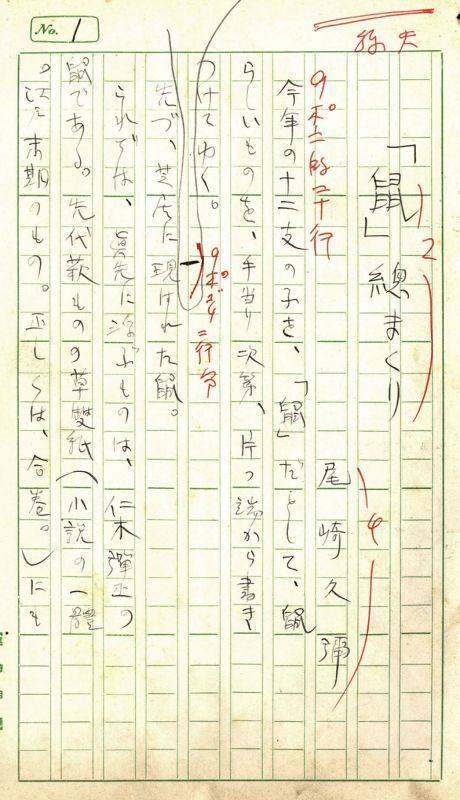 No. 1
「鼠」總まくり
2
尾崎久彌
4
9ポ二段二十行
今年の十二支の子を、「鼠」だとして、鼠
らしいものを、手当り次第、片つ端から書き
つけてゆく。
先づ、芝居に現はれた鼠。
られでは、眞先に浮ぶものは、仁木彈正の
鼠である。先代萩ものの草雙紙(小説の一體
。江戸末期のもの。正しくは、合巻。)にも